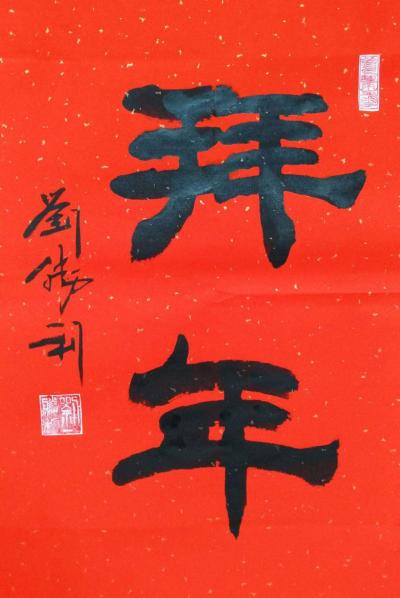 拜年
劉勝利